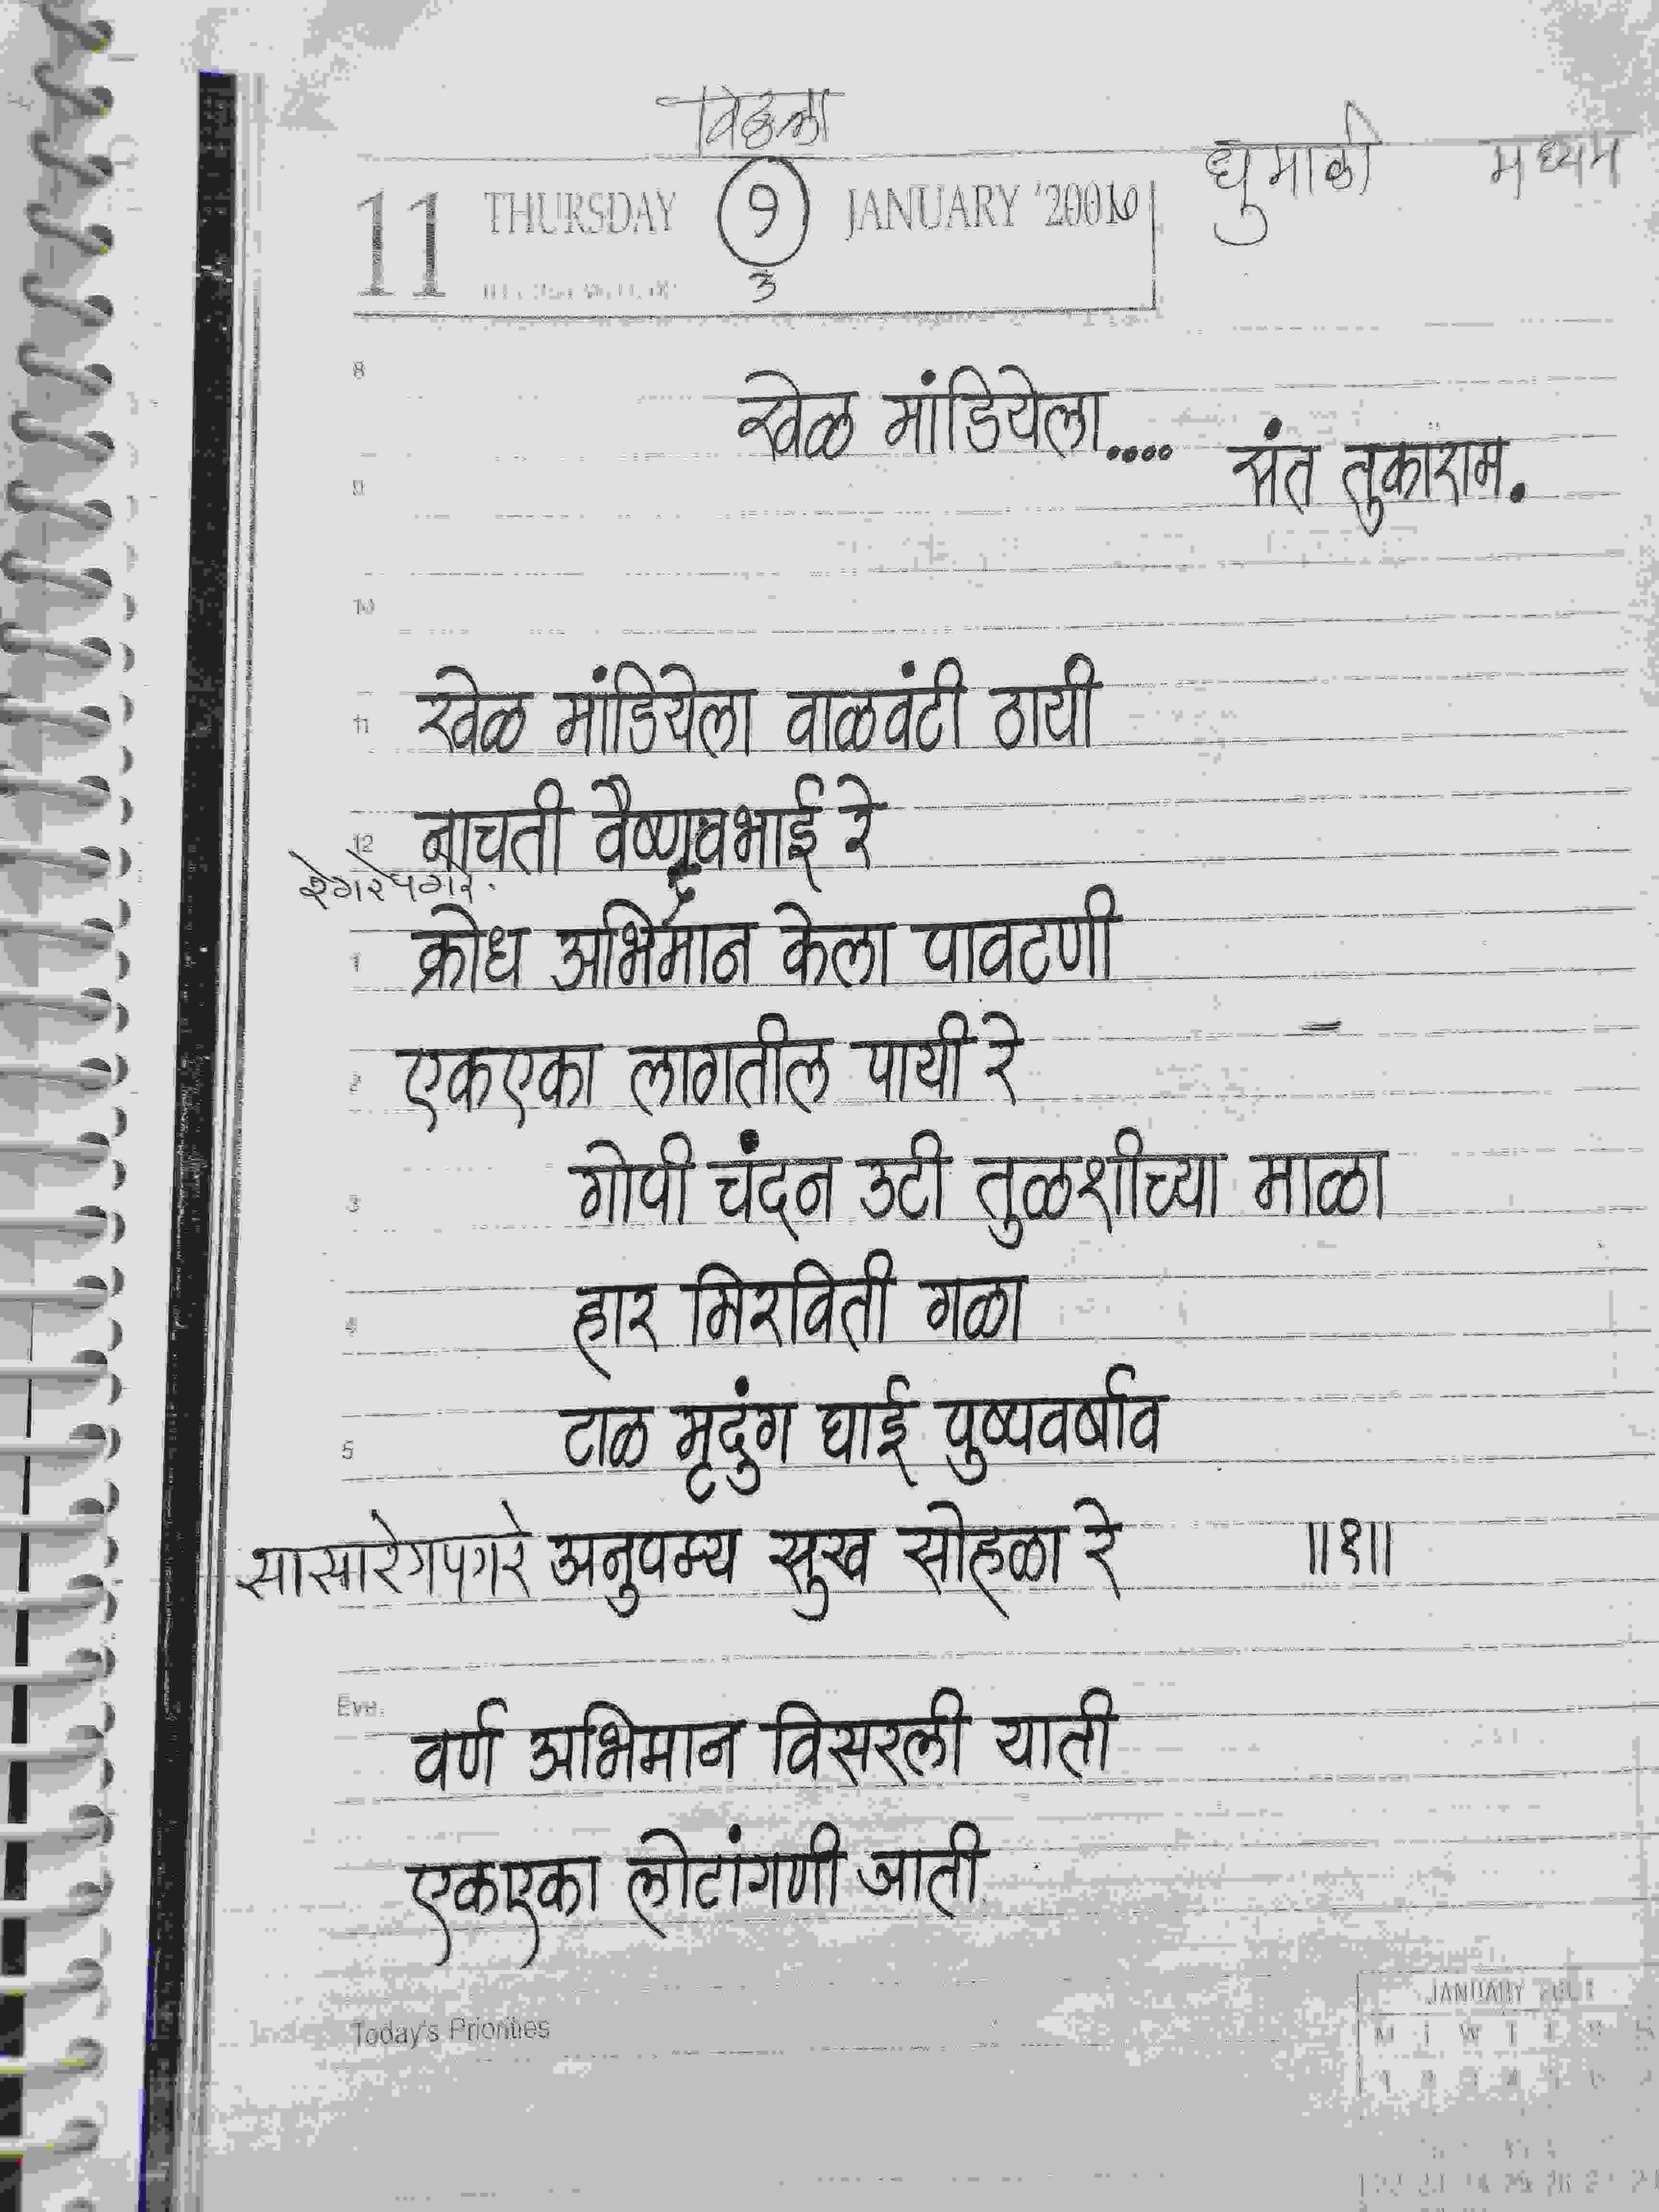 विठ्ठला
धुमाळी मध्यम
11 THURSDAY ९ JANUARY '2001
३
8
खेळ मांडियेला....
संत तुकाराम.
9
10
11 खेळ मांडियेला वाळवंटी ठायी
12 नाचती वैष्णवभाई रे
रेगरेपगरे.
1 क्रोध अभिमान केला पावटणी
2 एकएका लागतील पायी रे
3 गोपी चंदन उटी तुळशीच्या माळा
4 हार मिरविती गळा
5 टाळ मृदुंग घाई पुष्पवर्षाव
सासारेगपगरे अनुपम्य सुख सोहळा रे ॥१॥
Eve.
वर्ण अभिमान विसरली याती
एकएका लोटांगणी जाती
Today's Priorities
JANUARY 2001